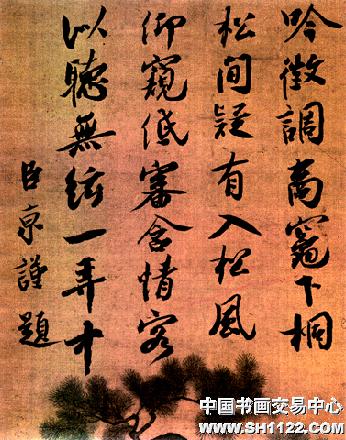 吟徵調商竈下桐
松間疑有入松風
仰窺低審含情客
似聽無絃一弄中
臣京謹題
中国书画交易中心
WWW.SH1122.COM